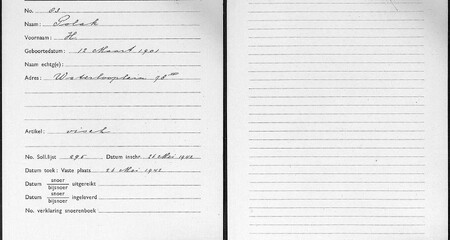 No. 83
Naam: Polak
Voornaam: H.
Geboortedatum: 12 Maart 1901
Naam echtg(e):
Adres: Waterlooplein 98
Artikel: visch
No. Soll.lijst 295 Datum inschr. 26 Mei 1942
Datum toek: Vaste plaats 26 Mei 1942
Datum snoer/bijsnoer uitgereikt
Datum snoer/bijsnoer ingeleverd
No. verklaring snoerenboek